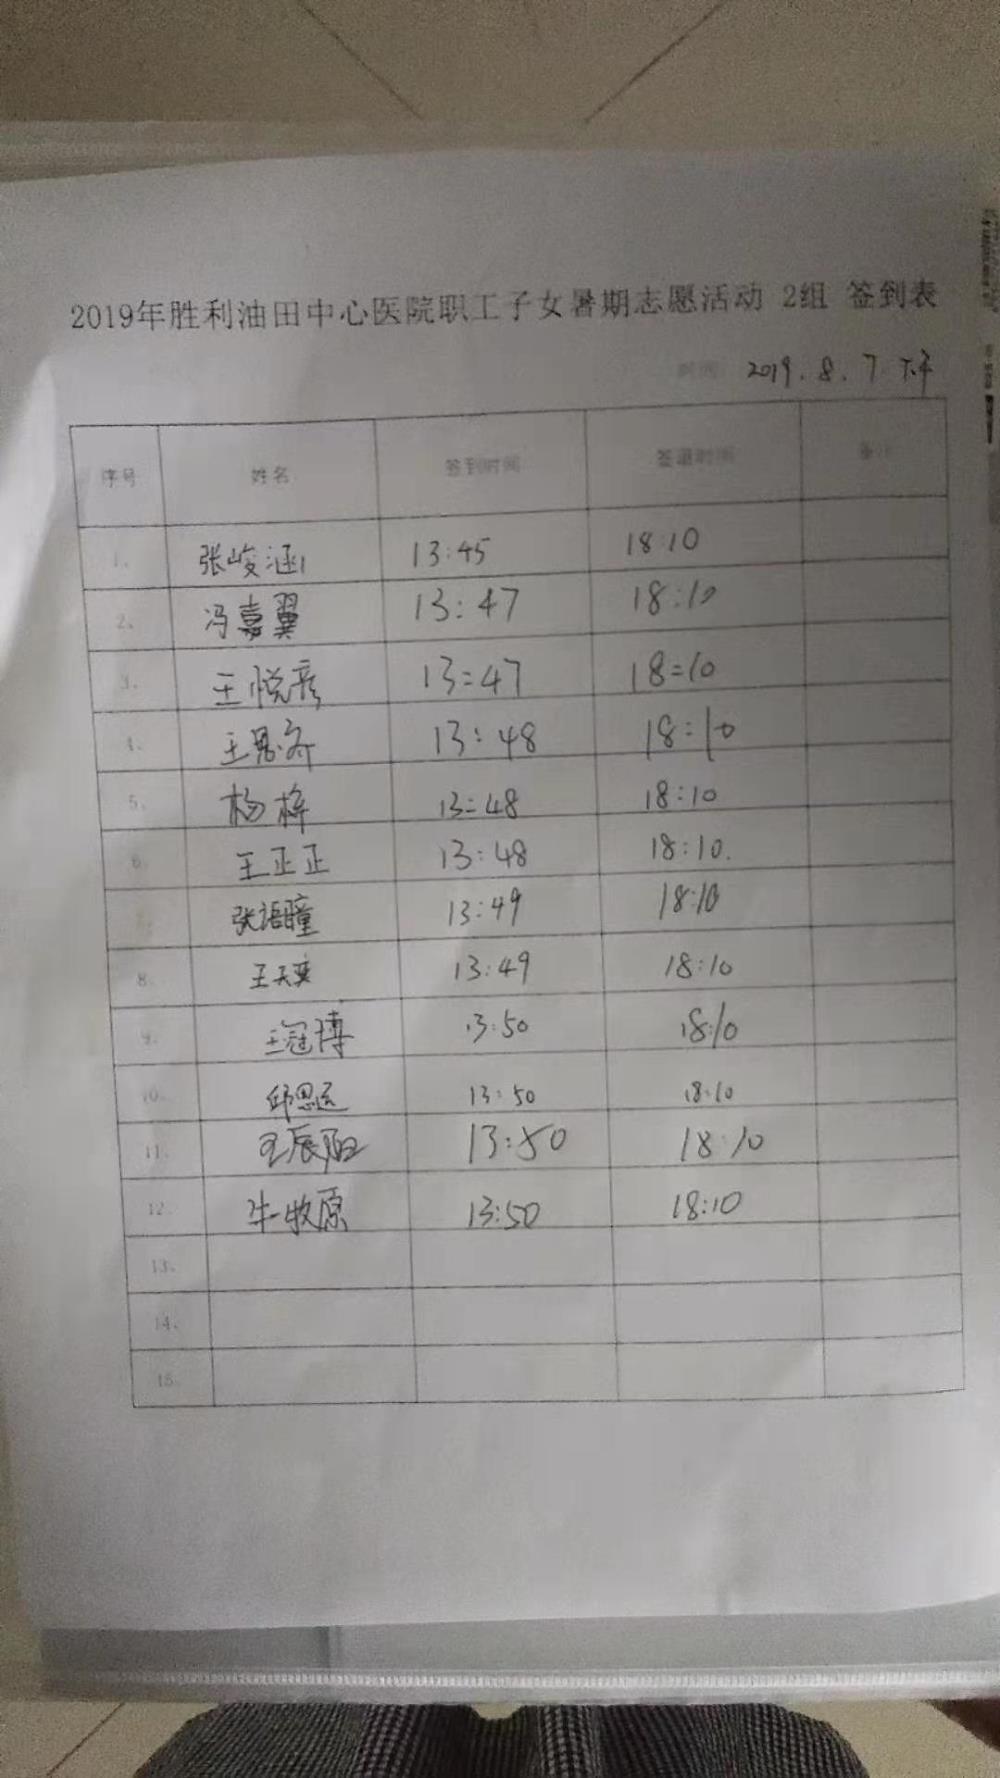 2019年胜利油田中心医院职工子女暑期志愿活动 2组 签到表
时间 2019.8.7 下午
序号 姓名 签到时间 签退时间 备注
1. 张峻涵 13:45 18:10
2、 冯嘉翼 13:47 18:10
3. 王悦彦 13:47 18:10
4、 13:48 18:10
5、 杨梓 13:48 18:10
6. 王正正 13:48 18:10.
张语瞳 13:49 18:10
8. 王天奕 13:49 18:10
9. 王冠博 13:50 18:10
10. 邱思远 13:50 18:10
11. 王辰阳 13:50 18:10
12. 牛牧原 13:50 18:10
13、
14、
15.